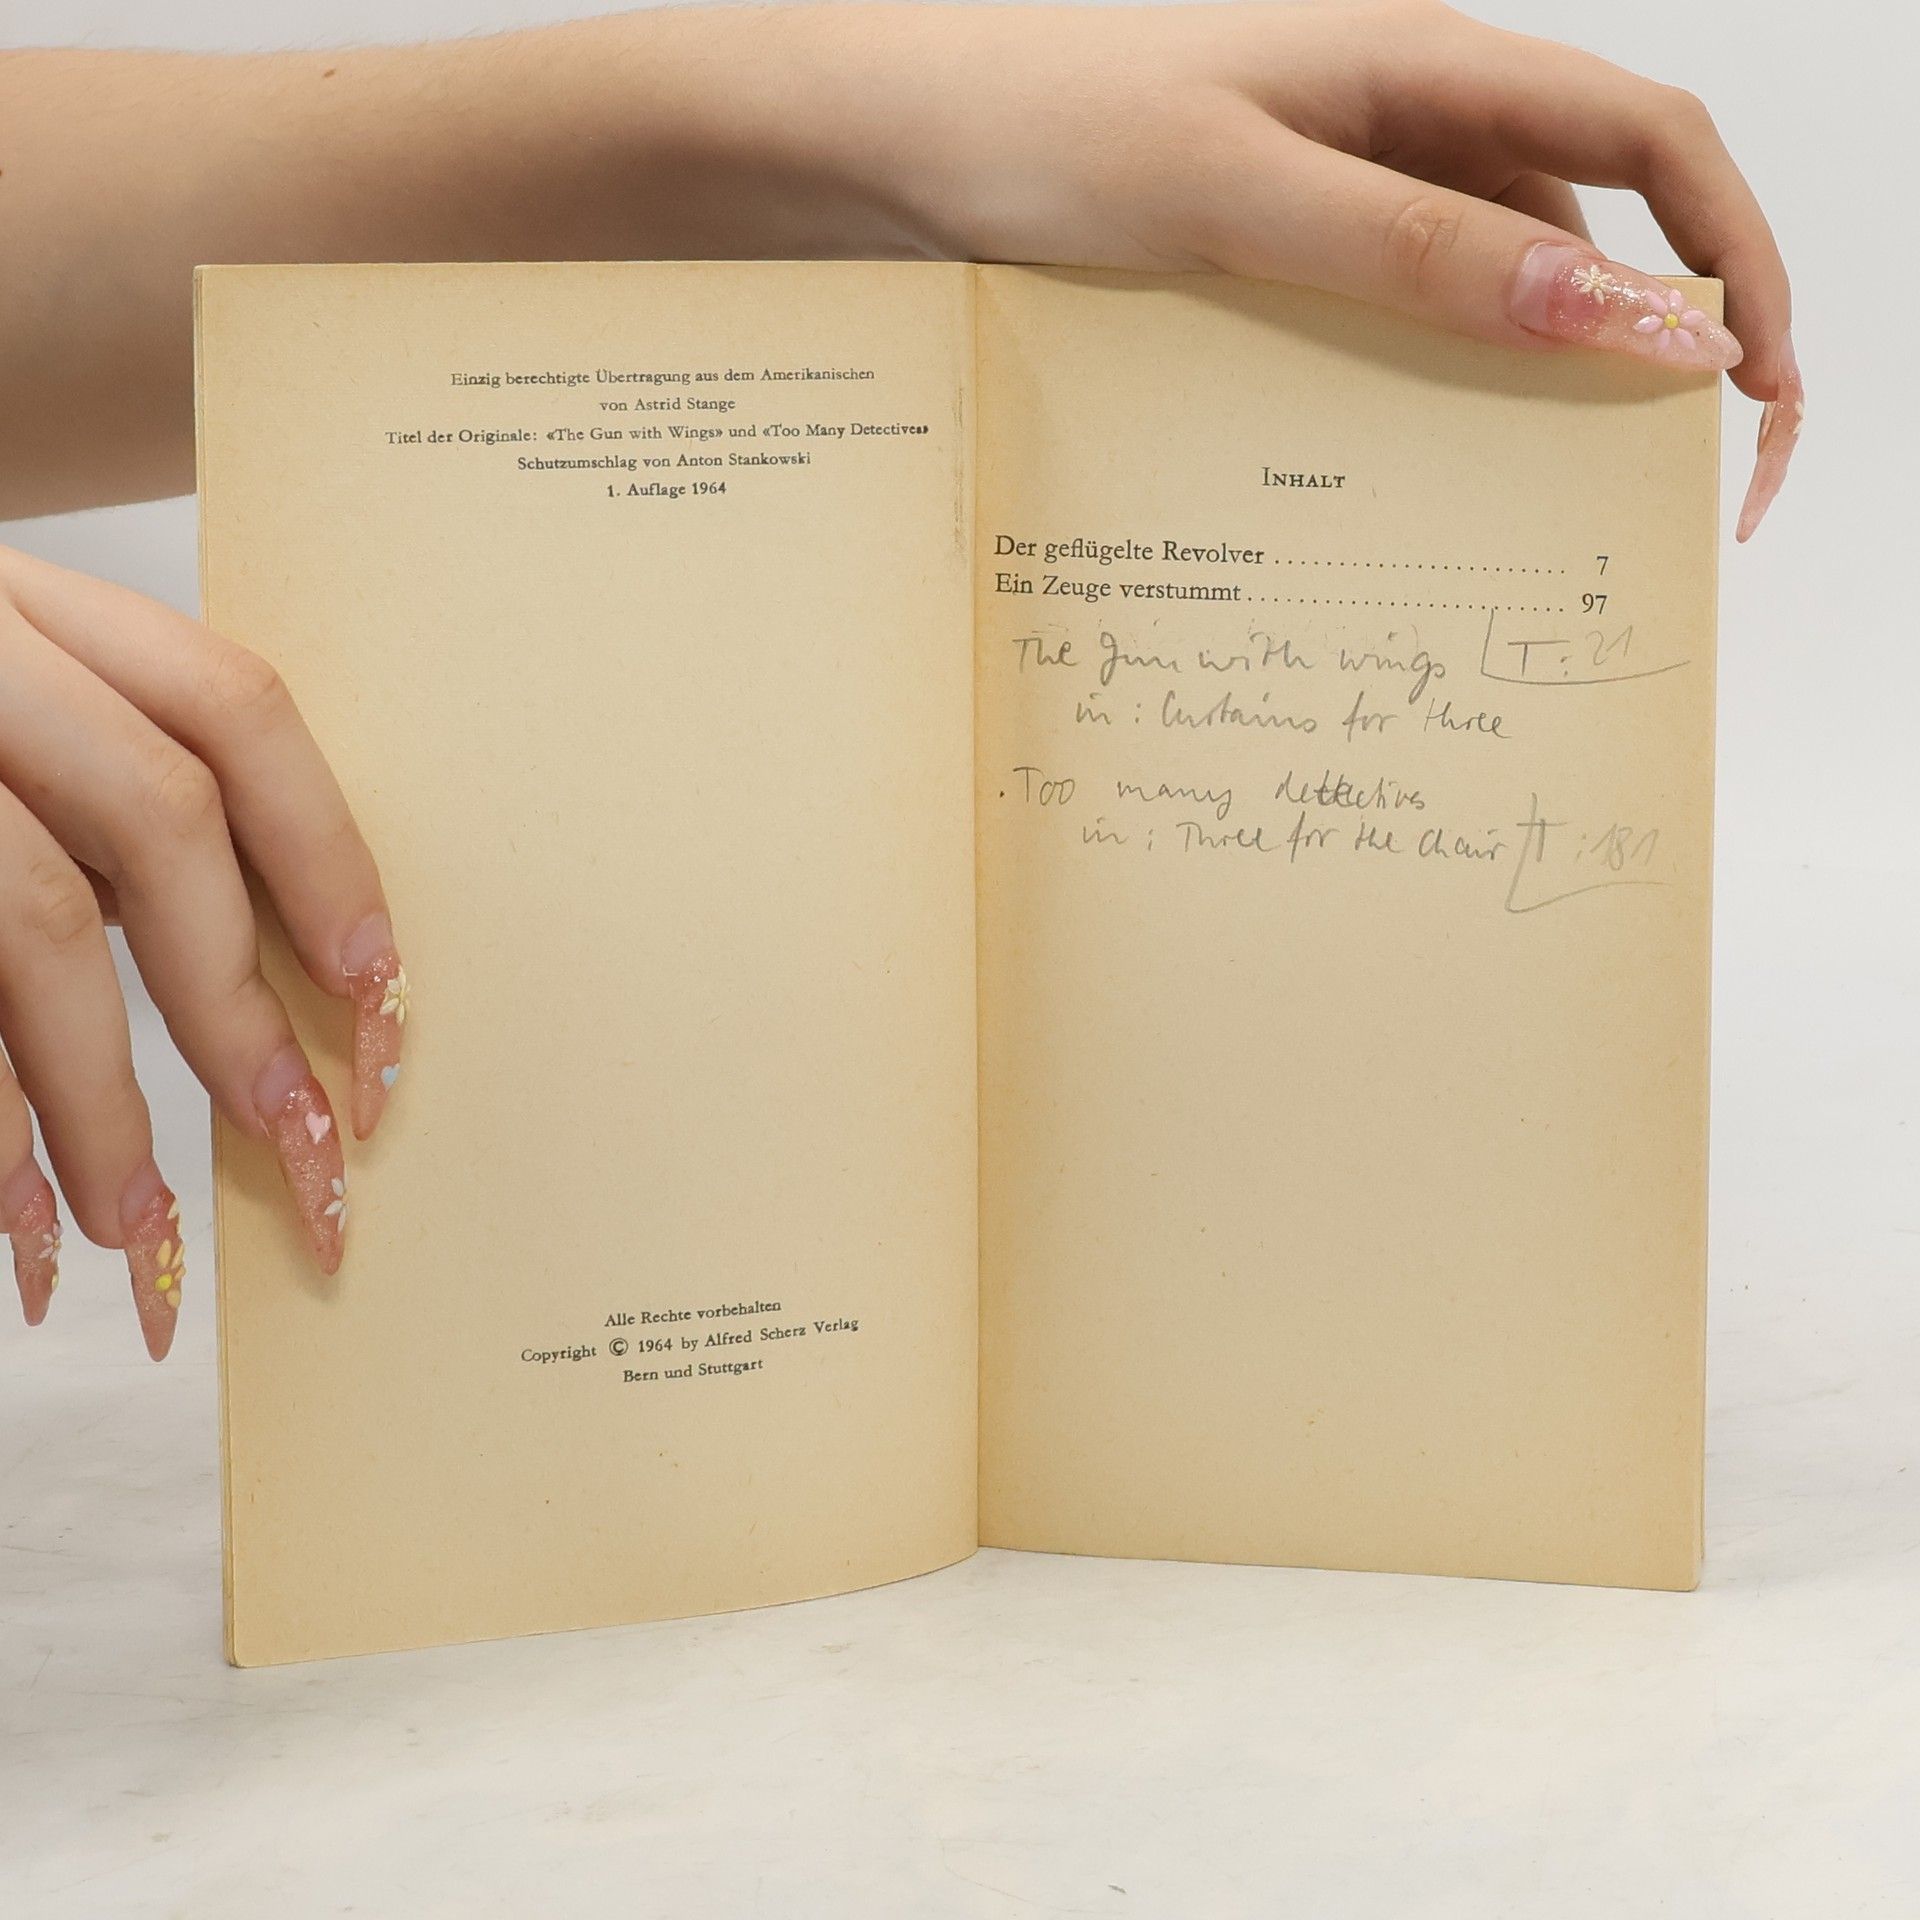 Einzig berechtigte Übertragung aus dem Amerikanischen
von Astrid Stange
Titel der Originale: «The Gun with Wings» und «Too Many Detectives»
Schutzumschlag von Anton Stankowski
1. Auflage 1964
Alle Rechte vorbehalten
Copyright © 1964 by Alfred Scherz Verlag
Bern und Stuttgart
INHALT
Der geflügelte Revolver ....................... 7
Ein Zeuge verstummt ......................... 97
The Gun with wings T: 21
in: Curtains for three
. Too many detectives
in: Three for the Chair T: 181